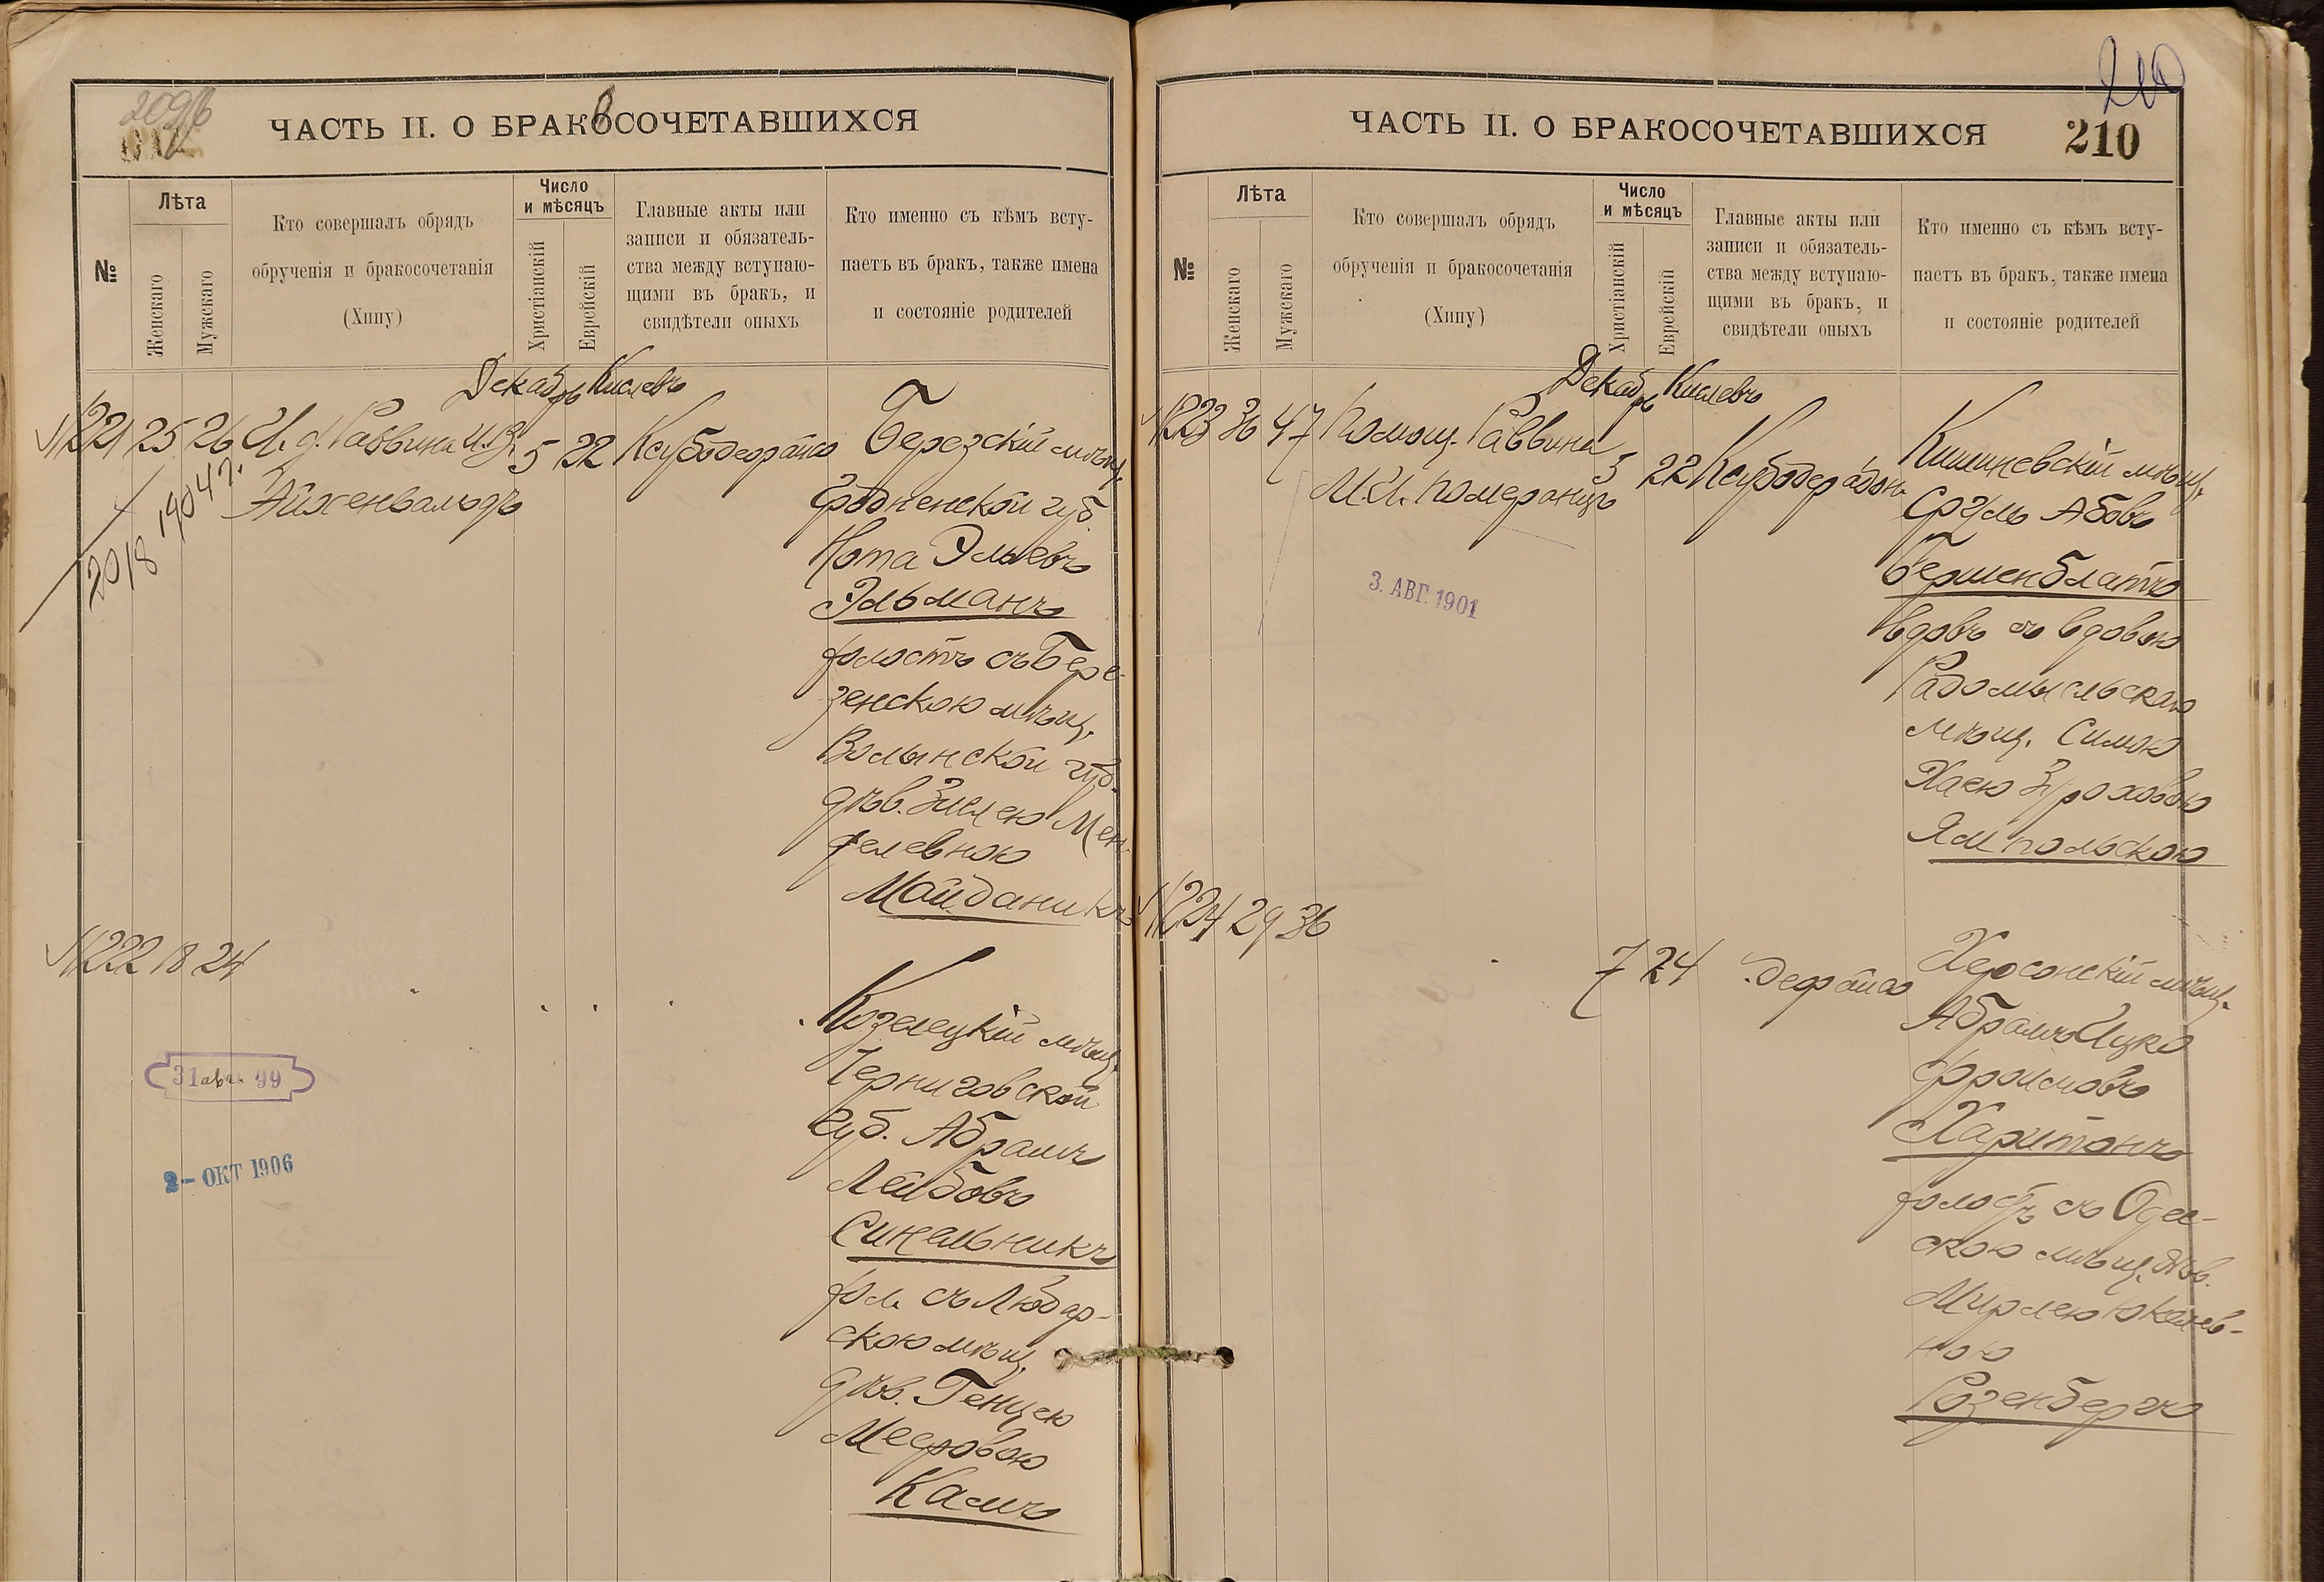 209 об
ЧАСТЬ II. О БРАКОСОЧЕТАВШИХСЯ
№
Лѣта
Женскаго
Мужскаго
Кто совершалъ обрядъ
обрученія и бракосочетанія
(Хипу)
Число
и мѣсяцъ
Христіанскій
Еврейскій
Главные акты или
записи и обязатель-
ства между вступаю-
щими въ бракъ, и
свидѣтели оныхъ
Кто именно съ кѣмъ всту-
паетъ въ бракъ, также имена
и состояніе родителей
Декабрь Кислевъ
1221 25 26 И. д. Раввина
Айхенвальдъ
5 22
Березскій мѣщ.
Гродненской губ.
Нота Эльевъ
Эльманъ
холостъ съ Бере-
зенскою мѣщ.
Волынской губ.
дѣв. Зислею Мен-
делевною
Майданикъ
2018 1904 г.
1222 18 24
Козелецкій мѣщ.
Черниговской
губ. Абрамъ
Лейбовъ
Синельникъ
хол. съ Любар-
скою мѣщ.
дѣв. Генцею
Мееровою
Камъ
31 авг. 99
2 - ОКТ 1906
210
ЧАСТЬ II. О БРАКОСОЧЕТАВШИХСЯ
210
№
Лѣта
Женскаго
Мужскаго
Кто совершалъ обрядъ
обрученія и бракосочетанія
(Хипу)
Число
и мѣсяцъ
Христіанскій
Еврейскій
Главные акты или
записи и обязатель-
ства между вступаю-
щими въ бракъ, и
свидѣтели оныхъ
Кто именно съ кѣмъ всту-
паетъ въ бракъ, также имена
и состояніе родителей
Декабрь Кислевъ
1223 36 47 Помощ. Раввина
М. И. Померанцъ
5 22
Кишиневскій мѣщ.
Сруль Абовъ
Бершенблатъ
вдовъ съ вдовою
Радомысльскою
мѣщ. Симою
Хаею
Ямпольскою
3. АВГ. 1901
1224 29 36
7 24
Херсонскій мѣщ.
Абрамъ Ицко
Фроимовъ
Харитонъ
холостъ съ Одес-
скою мѣщ. дѣв.
Мирлею Юкелев-
ною
Розенбергъ